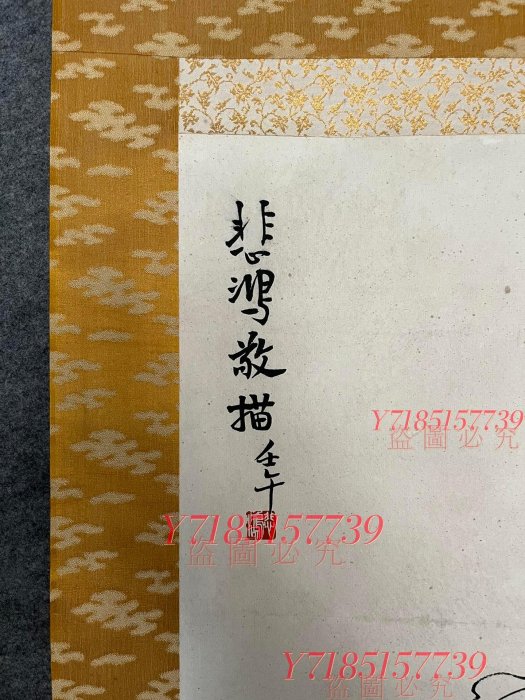 悲鴻敬描
壬午
Y7185157739
盜圖必究
Y7185157739
盜圖必究
Y7185157739
盜圖必究